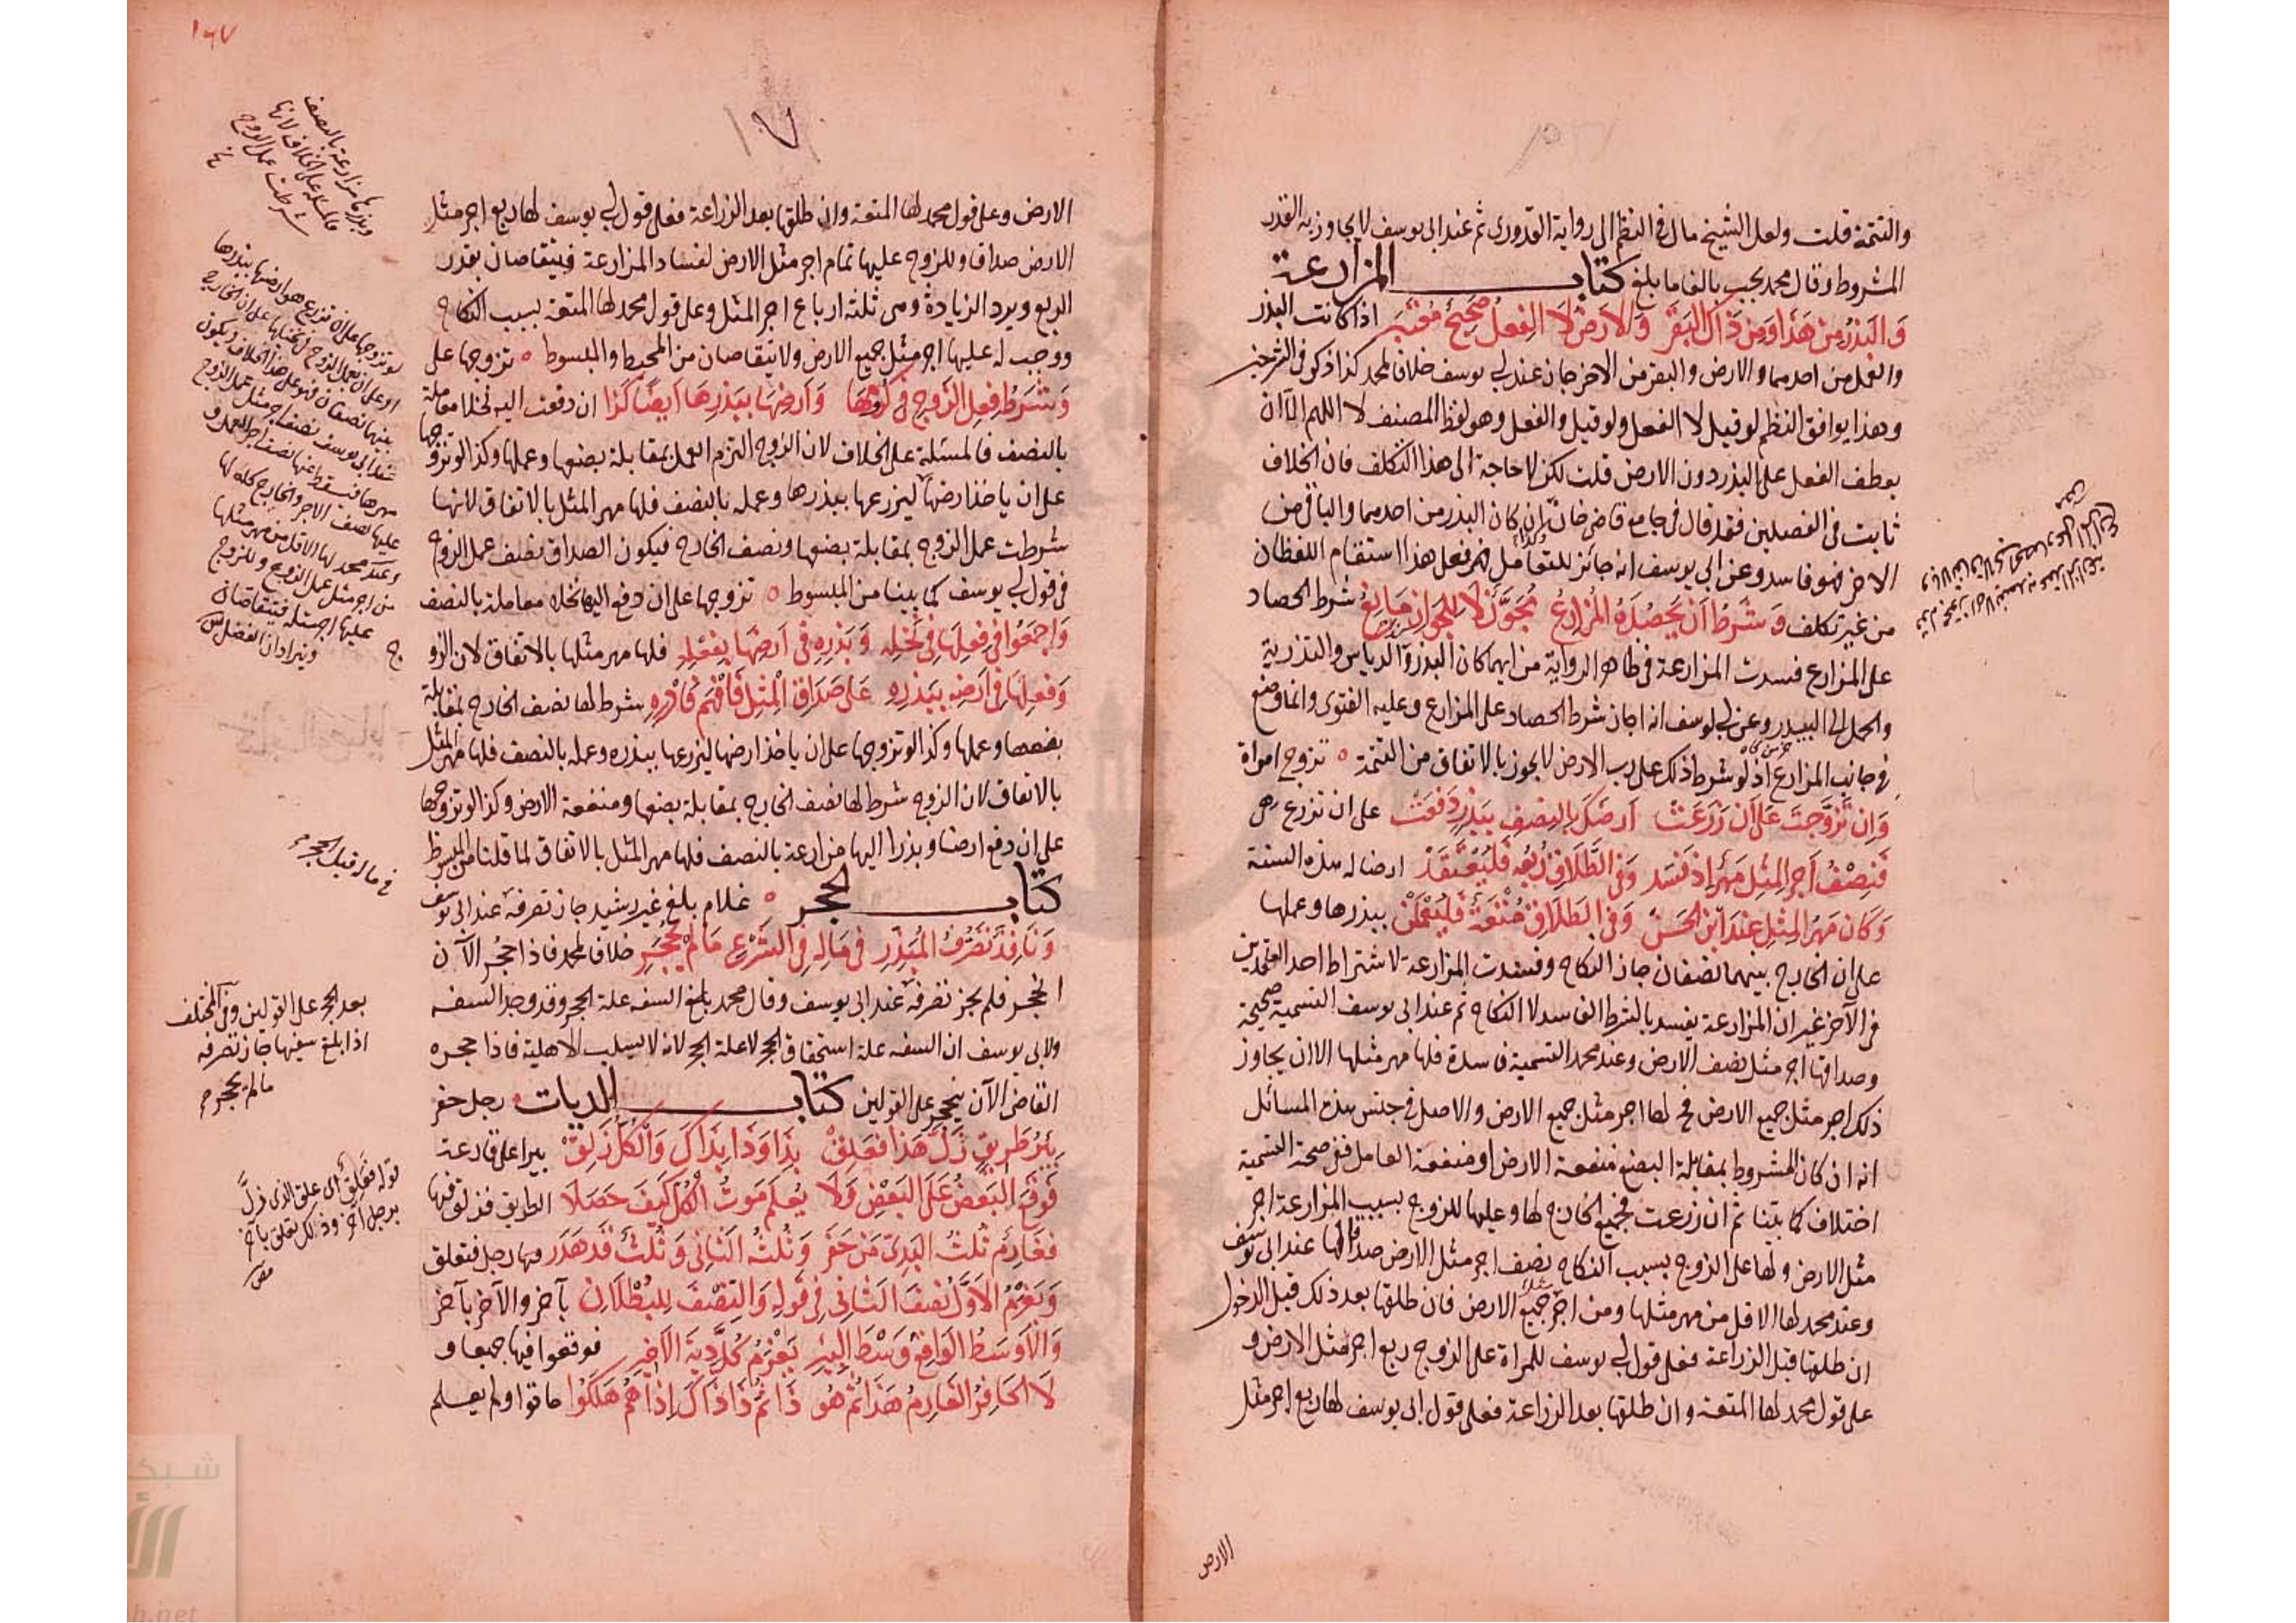 والتتمة قلت ولعل الشيخ مال في النظم الى رواية القدوري ثم عند ابي يوسف لا يجاوز به القدر
المشروط وقال محمد يجب بالغا ما بلغ كتاب المزارعة
وَالبَذرُ مِن هَذا وَمِن ذَاكَ البَقَر وَالارَضُ لَا الفِعلُ صَحِيحٌ مُعتَبَر اذا كانت البذر
والعمل من احدهما والارض والبقر من الاخر جاز عند ابي يوسف خلافا لمحمد كذا ذكر في
وهذا يوافق النظم لو قيل لا الفعل ولو قيل والفعل وهو لفظ المصنف لا اللهم الا ان
يعطف الفعل على البذر دون الارض قلت لكن لا حاجة الى هذا التكلف فان الخلاف
ثابت في الفصلين فقد قال في جامع قاضي خان وان كان البذر من احدهما والباقي من
الاخر فهو فاسد وعن ابي يوسف انه جائز للتعامل فعلى هذا استقام اللفظان
من غير تكلف وَ شَرطُ اَن يَحصُدَهُ المُزارِعُ مُجَوَّزٌ لَا لِلجَوازِ مَانِعُ شرط الحصاد
على المزارع فسدت المزارعة في ظاهر الرواية من ايهما كان البذر والدياس والتذرية
والحمل الى البيدر وعن ابي يوسف انه اجاز شرط الحصاد على المزارع وعليه الفتوى وانما وضع
في جانب المزارع اذ لو شرط ذلك على رب الارض لا يجوز بالاتفاق من التتمة ٥ تزوج امراة
وَاِن تَزَوَّجتَ عَلَى اَن زَرَعَت اَرضَكَ بِالنِصفِ بِبَذرٍ دَفَعَت على ان تزرع هي
فَنِصْفُ اَجرِ المِثلِ مَهرٌ اِذ فَسَد وَفي الطَّلَاقِ رُبعُه فَليُعتَقَد ارضا له هذه السنة
وَكَانَ مَهرُ المِثلِ عِندَ ابنِ الحَسَن وَفي الطَلَاقِ مُتْعَةٌ فَليُعْلَمَنْ ببذرها وعملها
على ان الخارج بينهما نصفان جاز النكاح وفسدت المزارعة لاشتراط احد العقدين
في الآخر غير ان المزارعة يفسد بالشرط الفاسد لا النكاح ثم عند ابي يوسف التسمية صحيحة
وصداقها اجر مثل نصف الارض وعند محمد التسمية فاسدة فلها مهر مثلها الا ان يجاوز
ذلك اجر مثل جميع الارض فح لها اجر مثل جميع الارض والاصل في جنس هذه المسائل
انه ان كان المشروط بمقابلة البضع منفعة الارض او منفعة العامل ففي صحة التسمية
اختلاف كما بينا ثم ان زرعت فجميع الخارج لها وعليها للزوج بسبب المزارعة اجر
مثل الارض ولها على الزوج بسبب النكاح نصف اجر مثل الارض صداقها عند ابي يوسف
وعند محمد لها الاقل من مهر مثلها ومن اجر مثل جميع الارض فان طلقها بعد ذلك قبل الدخول
ان طلقها قبل الزراعة فعلى قول ابي يوسف للمراة على الزوج ربع اجر مثل الارض و
على قول محمد لها المتعة وان طلقها بعد الزراعة فعلى قول ابي يوسف لها ربع اجر مثل
الارض
١٦٧
١٠٧
الارض وعلى قول محمد لها المتعة وان طلقها بعد الزراعة فعلى قول ابي يوسف لها ربع اجر مثل
الارض صداقا وللزوج عليها تمام اجر مثل الارض لفساد المزارعة فيتقاصان بقدر
الربع ويرد الزيادة وهي ثلثة ارباع اجر المثل وعلى قول محمد لها المتعة بسبب النكاح
ووجب له عليها اجر مثل جميع الارض ولا يتقاصان من المحيط والمبسوط ٥ تزوجها على
وَشَرطُ فِعلِ الزَّوجِ في كُرُومِهَا وَاَرضِهَا بِبَذرِهَا اَيضًا كَذا ان دفعت اليه نخلا معاملة
بالنصف فالمسئلة على الخلاف لان الزوج التزم العمل بمقابلة بضعها وعملها وكذا لو تزوجها
على ان ياخذ ارضها ليزرعها ببذرها وعمله بالنصف فلها مهر المثل بالاتفاق لانها
شرطت عمل الزوج بمقابلة بضعها ونصف الخارج فيكون الصداق نصف عمل الزوج
في قول ابي يوسف كما بينا من المبسوط ٥ تزوجها على ان دفع اليها نخله معاملة بالنصف
وَاجمَعُوا في فِعلِهَا في نَخلِه وَبَذرِه في اَرضِهَا بِفِعلِهِ فلها مهر مثلها بالاتفاق لان الزو
وَفعلِهَا في اَرضِه بِبَذرِه عَلى صَدَاقِ المِثلِ فَافْهَم فَادْرِهِ شرط لها نصف الخارج بمقابلة
بضعها وعملها وكذا لو تزوجها على ان ياخذ ارضها ليزرعها ببذره وعمله بالنصف فلها مهر المثل
بالاتفاق لان الزوج شرط لها نصف الخارج بمقابلة بضعها ومنفعة الارض وكذا لو تزوجها
على ان دفع ارضا وبذرا اليها مزارعة بالنصف فلها مهر المثل بالاتفاق لما قلنا من المبسوط
كتاب الحجر ٥ غلام بلغ غير رشيد جاز تصرفه عند ابي يوسف
وَنَافِذٌ تَصَرُّفُ المُبَذِّرِ في مَالِهِ في الشَرْعِ مَا لَمْ يُحْجَرِ خلافا لمحمد فاذا حجر الآن
الحجر فلم يجز تصرفه عند ابي يوسف وقال محمد السفه علة الحجر وقد وجد السفه
ولابي يوسف ان السفه علة استحقاق الحجر لا علة الحجر لانه لا يسلب الاهلية فاذا حجره
القاضي الآن ينحجر على القولين كتاب الديات رجل حفر
بِئرُ طَرِيقٍ زَلَّ هَذا فَعَلِقْ بِذَا وَذَا بِذَاكَ وَالكُلُّ زَلِقْ بيرا على قارعة
فَوَقَعَ البَعضُ عَلَى البَعضِ وَلَا يُعلَمُ مَوتُ الكُلِّ كَيفَ حَصَلَا الطريق فزلق فيها
فَغَارِمٌ ثُلثَ البَدِيِّ مَن حَفَر وَثُلثُه الثَاني وَثُلثٌ قَد هَدَر رجل فتعلق
وَيَغرَمُ الاَوَّلُ نُصفَ الثَاني في قَولِه وَالنِصْفُ لِلبُطْلَانِ بآخر والآخر بآخر
وَالاَوسَطُ الوَاقِعُ وَسْطَ البِيرِ يَغْرَمُ كُلَّ دِيَةِ الاَخِيرِ فوقعوا فيها جميعا و
لَا الحَافِرُ الغَارِمُ هَذَا ثُمَّ هُو ذَا ثُمَّ ذَا ذَاكَ اِذَا هُم هَلَكُوا ماتوا ولم يعلم
وبذرها مزارعة بالنصف
فالمسئلة على الخلاف لانها
شرطت عمل الزوج
لو تزوجها على ان تزرع هو ارضها ببذرها
او على ان يعمل الزوج في نخلها على ان الخارج
بينهما نصفان فهو على هذا الخلاف ويكون
عند ابي يوسف نصف اجر مثل عمل الزوج
مهرها فيسقط عنها نصف اجر العمل و
عليها نصف الاجر والخارج كله لها
وعند محمد لها الاقل من مهر مثلها
من اجر مثل عمل الزوج وللزوج
عليها اجر مثله فيتقاصان
ويترادان الفضل
في ماله قبل الحجر
بعد الحجر على القولين وفي المختلف
اذا بلغ سفيها جاز تصرفه
ما لم يحجر
قوله فعلق اي علق الذي زلّ
برجل آخر وذلك تعلق بآخر